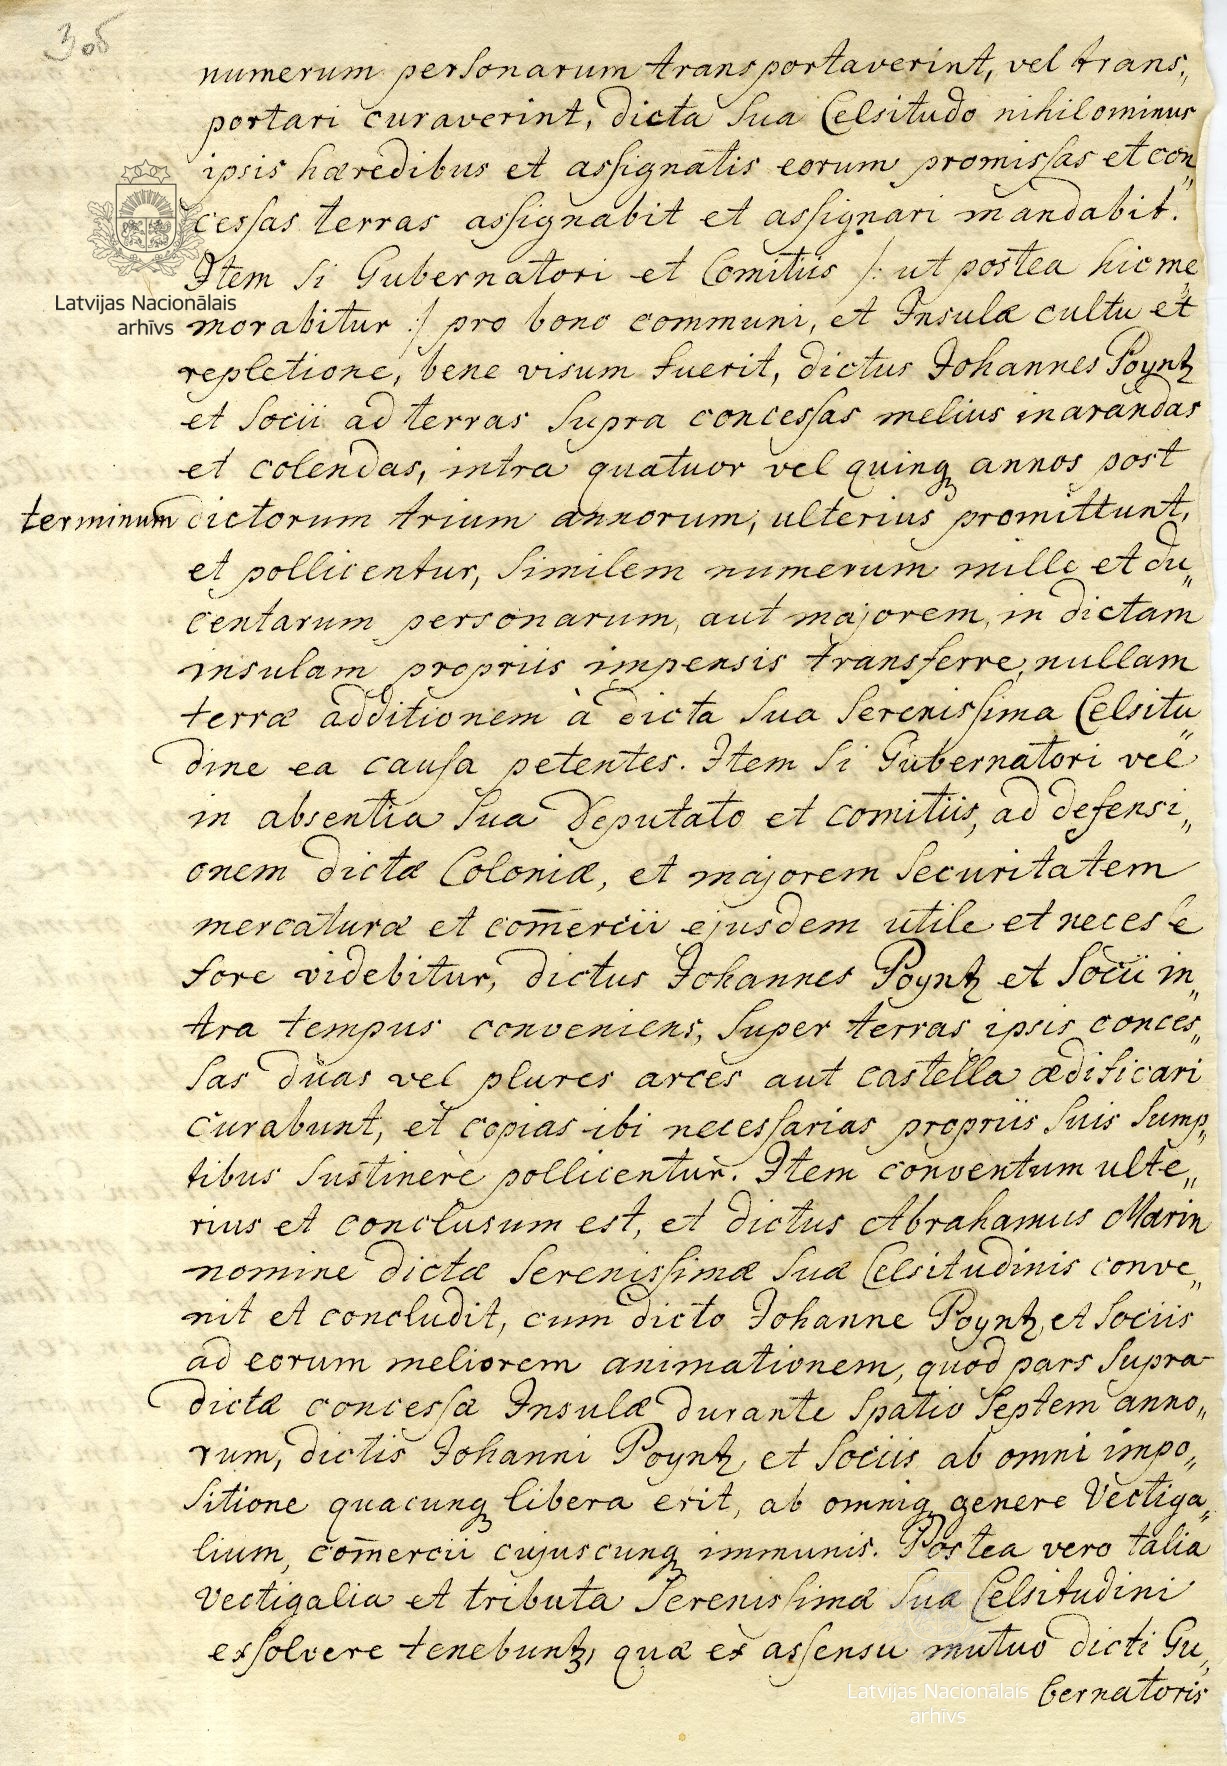 305
numerum personarum transportaverint, vel trans„
portari curaverint, dicta Sua Celsitudo nihilominus
ipsis hæredibus et assignatis eorum promissas et con„
cessas terras assignabit et assignari mandabit.
Item si Gubernatori et Comitiis /: ut postea hic me„
morabitur :/ pro bono communi, et Insulæ cultu et
repletione, bene visum fuerit, dictus Johannes Poyntz
et Socii ad terras supra concessas melius inarandas
et colendas, intra quatuor vel quinq annos post
terminum dictorum trium annorum, ulterius promittunt,
et pollicentur, similem numerum mille et du„
centarum personarum, aut majorem, in dictam
insulam propriis impensis transferre, nullam
terræ additionem à dicta Sua Serenissima Celsitu„
dine ea causa petentes. Item si Gubernatori vel
in absentia sua Deputato et comitiis, ad defensi„
onem dictæ Coloniæ, et majorem securitatem
mercaturæ et com̄ercii ejusdem utile et necesse
fore videbitur, dictus Johannes Poyntz et Socii in„
tra tempus conveniens, super terras ipsis conces„
sas duas vel plures arces aut castella ædificari
curabunt, et copias ibi necessarias propriis suis sump„
tibus sustinere pollicentur. Item conventum ulte„
rius et conclusum est, et dictus Abrahamus Marin
nomine dictæ Serenissimæ Suæ Celsitudinis conve„
nit et concludit, cum dicto Johanne Poyntz et Sociis
ad eorum meliorem animationem, quod pars supra-
dictæ concessæ Insulæ durante spatio septem anno„
rum, dictis Johanni Poyntz et Sociis ab omni impo„
sitione quacunq libera erit, ab omniq genere Vectiga„
lium, com̄ercii cujuscunq immunis. Postea vero talia
Vectigalia et tributa Serenissimæ Suæ Celsitudini
exsolvere tenebuntz, quæ ex assensu mutuo dicti Gu„
bernatoris
Latvijas Nacionālais
arhīvs
Latvijas Nacionālais
arhīvs